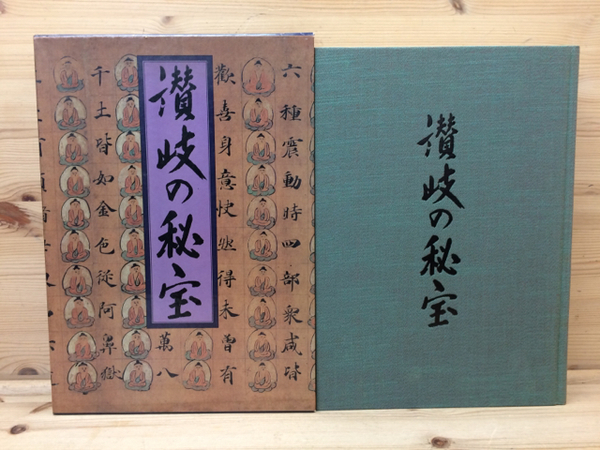 讃岐の秘宝
六種震動時四部衆咸皆
歡喜身意快然得未曾有
萬八
千土皆如金色従阿鼻獄
讃岐の秘宝